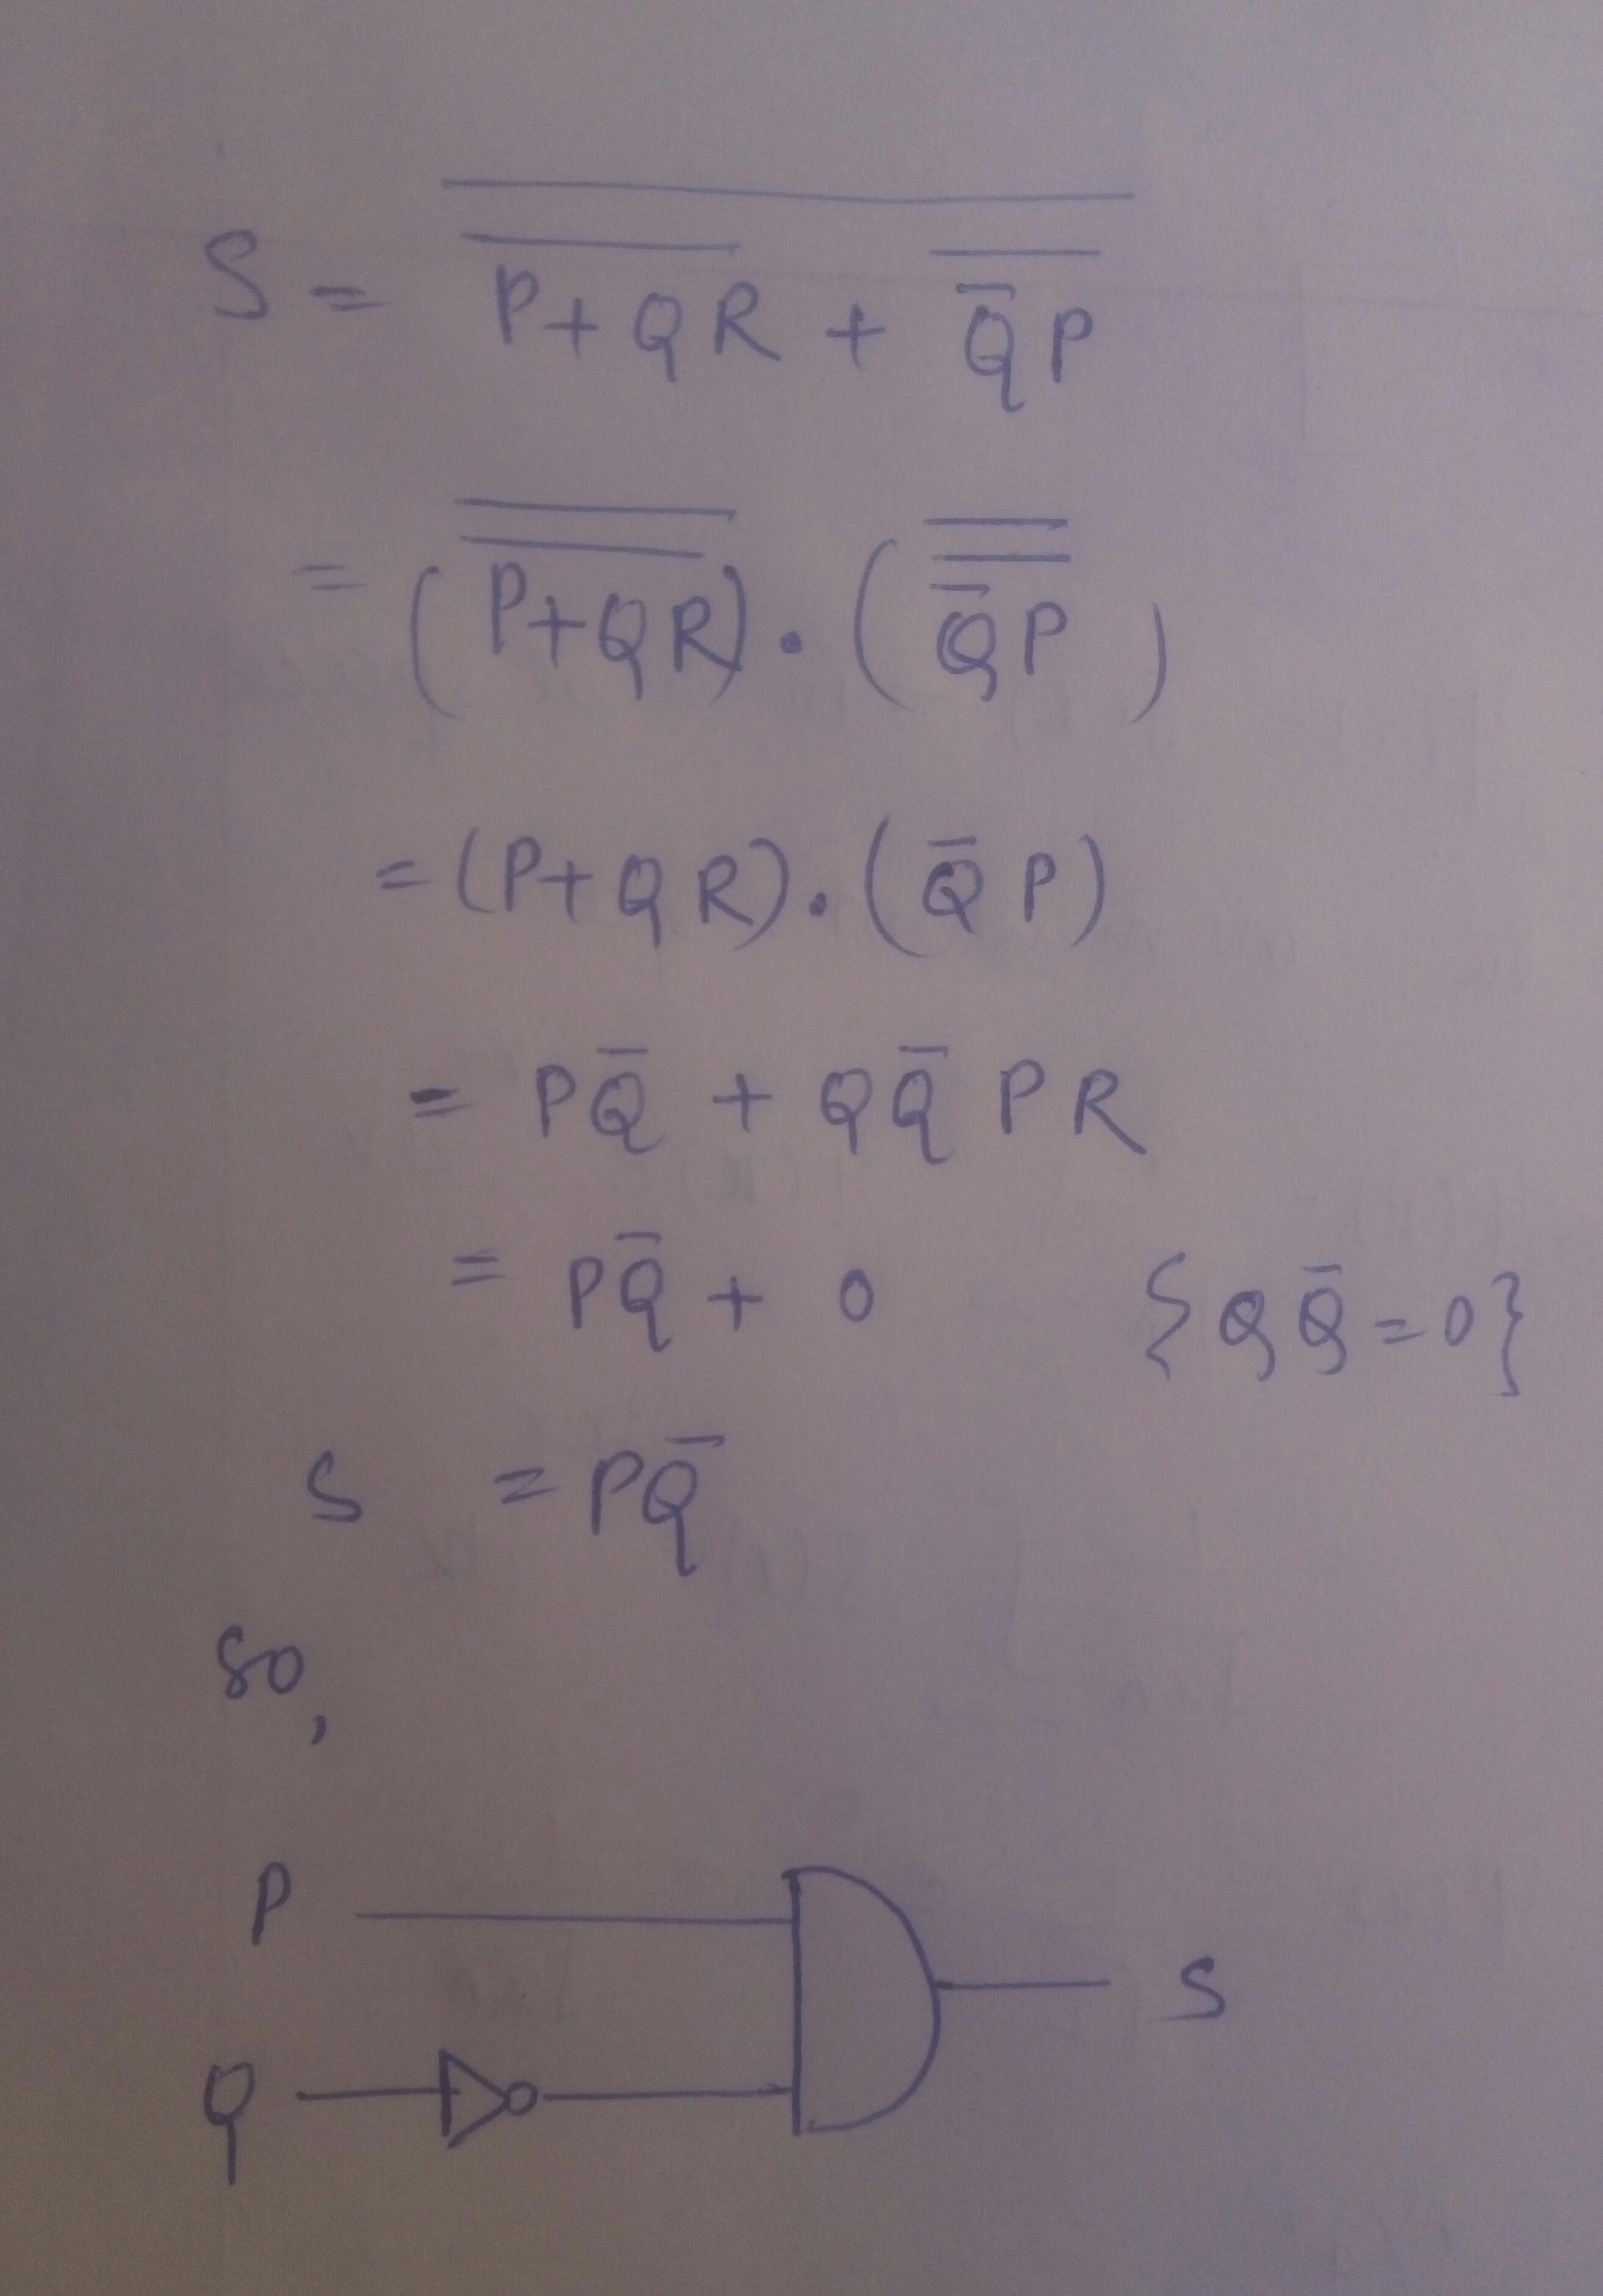 S = \overline{\overline{P+QR} + \overline{\overline{Q}P}}
= (\overline{\overline{P+QR}}) . (\overline{\overline{\overline{Q}P}})
= (P+QR) . (\overline{Q}P)
= P\overline{Q} + Q\overline{Q}PR
= P\overline{Q} + 0 {Q\overline{Q}=0}
S = P\overline{Q}
so,
P
S
Q